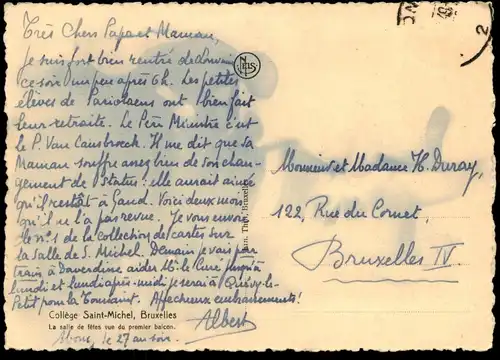 Très Chers Papa et Maman,
je suis fort bien rentré de Louvain
ce soir un peu après 6h. Les petites
élèves de Pariotaens ont bien fait
leur retraite. Le Père Ministre c'est
le P. Van Cambroeck. Il me dit que sa
Maman souffre assez bien de son chan-
gement de status: elle aurait aimé
qu'il restât à Gand. Voici deux mois
qu'il ne l'a pas revue. Je vous envoie
le n°1 de la collection de cartes sur
la Salle de S. Michel. Demain je vais par
train à Daverdisse aider M. le Curé jusqu'à
lundi et lundi après-midi je serai à Quévy-le-
Petit pour la Toussaint. Affectueux embrassements!
Albert
Collège Saint-Michel, Bruxelles
La salle de fêtes vue du premier balcon.
le 27 au soir.
NELS
Thill, Bruxelles
Monsieur et Madame H. Duray,
122, Rue du Cornet,
Bruxelles IV.
2